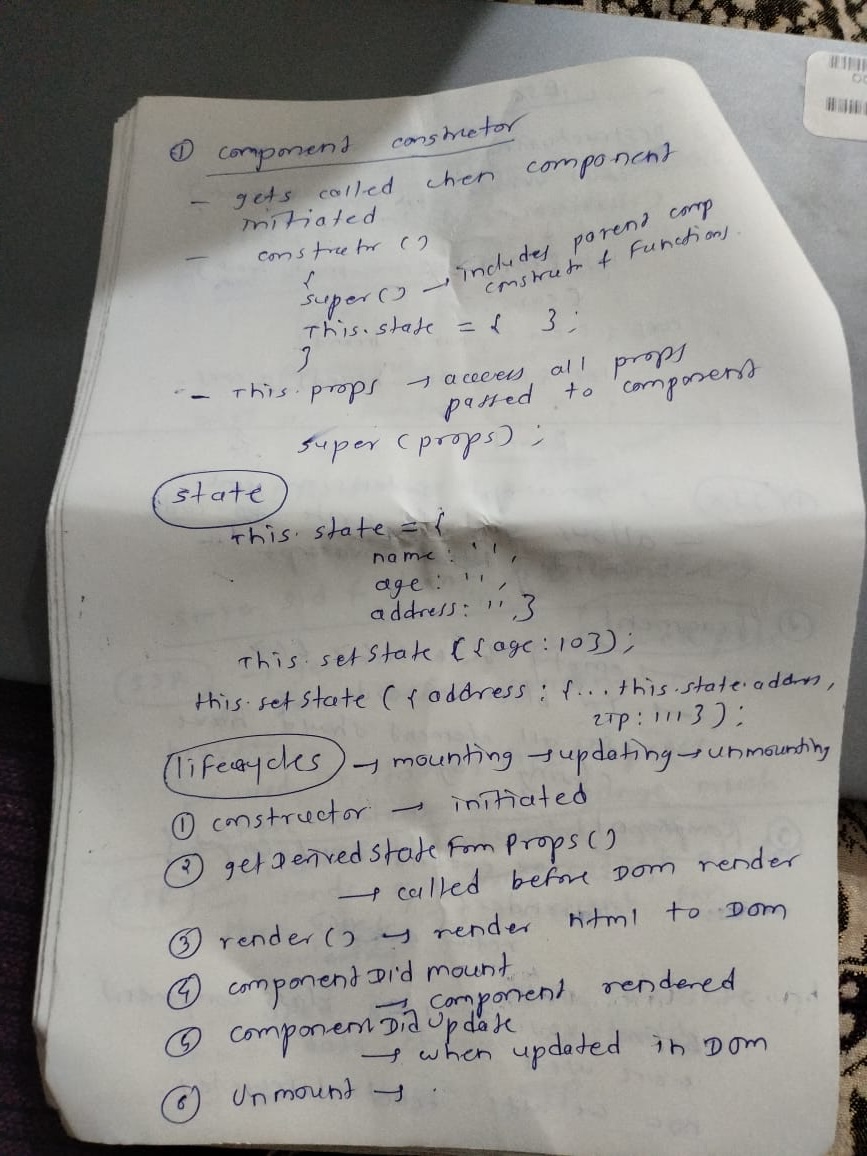 ① component constructor
- gets called when component
initiated
- constructor ()
{
super() → includes parent comp
construct + functions.
This.state = { };
}
- This.props → access all props
passed to component
super (props);
state
This.state = {
name: '',
age: '',
address: '',}
This.setState ({age:10});
this.setState ({address: {...this.state.address,
ZIP: 111});
lifecycles → mounting → updating → unmounting
① constructor → initiated
② getDerivedStateFromProps()
→ called before DOM render
③ render() → render html to DOM
④ component Did mount
→ component rendered
⑤ component Did Update
→ when updated in DOM
⑥ Unmount →